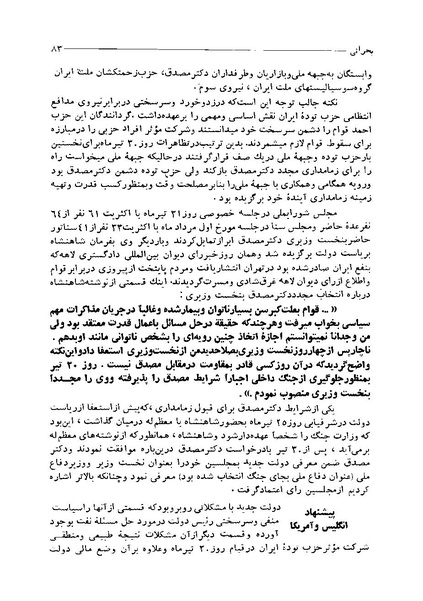 بحرانی
۸۳
وابستگان به جبهه ملی وبازاریان وطرفداران دکترمصدق، حزب زحمتکشان ملت ایران
گروه سوسیالیستهای ملت ایران ، نیروی سوم .
نکته جالب توجه این است که درزدوخورد وسرسختی دربرابرنیروی مدافع
انتظامی حزب توده ایران نقش اساسی ومهمی را برعهده داشت . گردانندگان این حزب
احمد قوام را دشمن سرسخت خود میدانستند وشرکت مؤثر افراد حزبی را درمبارزه
برای سقوط . قوام لازم میشمردند. بدین ترتیب درتظاهرات روز ۳۰ تیرماه برای نخستین
بارحزب توده وجبهه ملی دریك صف قرارگرفتند درحالیکه جبهه ملی میخواست راه
را برای زمامداری مجدد دکترمصدق بازکند ولی حزب توده دشمن دکترمصدق بود
ورویه همگامی وهمکاری با جبهه ملی را بنابرمصلحت وقت وبمنظورکسب قدرت وتهیه
زمینه زمامداری آینده خود برگزیده بود .
مجلس شورایملی درجلسه خصوصی روز ۳۱ تیرماه با اکثریت ۶۱ نفر از ۶۴
نفرعدهٔ حاضر ومجلس سنا درجلسه مورخ اول مرداد ماه با اکثریت ۳۳ نفراز ۴۱ سناتور
حاضربنخست وزیری دکترمصدق ابرازتمایل کردند وباردیگر وی بفرمان شاهنشاه
بریاست دولت برگزیده شد وهمان روزخبررای دیوان بین المللی دادگستری لاهه که
بنفع ایران صادرشده بود درتهران انتشاریافت ومردم پایتخت ازپیروزی دربرابرقوام
واطلاع ازرای دیوان لاهه غرق شادی ومسرت گردیدند. اینك قسمتی ازنوشته شاهنشاه
درباره انتخاب مجدددکترمصدق بنخست وزیری :
« ... قوام بعلت کبرسن بسیارناتوان وبیمارشده وغالباً درجریان مذاکرات مهم
سیاسی بخواب میرفت وهرچندکه حقیقة درحل مسائل باعمال قدرت معتقد بود ولی
من وجداناً نمیتوانستم اجازهٔ اتخاذ چنین رویه‌ای را بشخص ناتوانی مانند اوبدهم .
ناچارپس ازچهارروزنخست وزیری بصلاحدیدمن ازنخست وزیری استعفا دادواین نکته
واضح گردیدکه درآن روزکسی قادر بمقاومت درمقابل مصدق نیست . روز ۳۰ تیر
بمنظورجلوگیری ازجنگ داخلی اجباراً شرایط مصدق را پذیرفته ووی را مجدداً
بنخست وزیری منصوب نمودم .» .
یکی ازشرایط دکترمصدق برای قبول زمامداری ،که پیش ازاستعفا ازریاست
دولت درشرفیابی روز ۲۵ تیرماه بحضورشاهنشاه با معظم له درمیان گذاشت ، این بود
که وزارت جنگ را شخصاً عهده دارشود وشاهنشاه ، همانطورکه ازنوشته‌های معظم له
برمی‌آید ، پس از ۳۰ تیر بادرخواست دکترمصدق دراین باره موافقت نمودند ودکتر
مصدق ضمن معرفی دولت جدید بمجلسین خودرا بعنوان نخست وزیر ووزیردفاع
ملی (عنوان دفاع ملی بجای جنگ انتخاب شده بود) معرفی نمود وچنانکه بالاتر اشاره
کردیم ازمجلسین رای اعتمادگرفت .
پیشنهاد
انگلیس وآمریکا
دولت جدید با مشکلاتی روبرو بود که قسمتی از آنها راسیاست
منفی وسرسختی رئیس دولت درمورد حل مسئلهٔ نفت بوجود
آورده وقسمت دیگرآن مشکلات نتیجهٔ طبیعی ومنطقی
شرکت مؤثرحزب تودهٔ ایران درقیام روز ۳۰ تیرماه وعلاوه برآن وضع مالی دولت